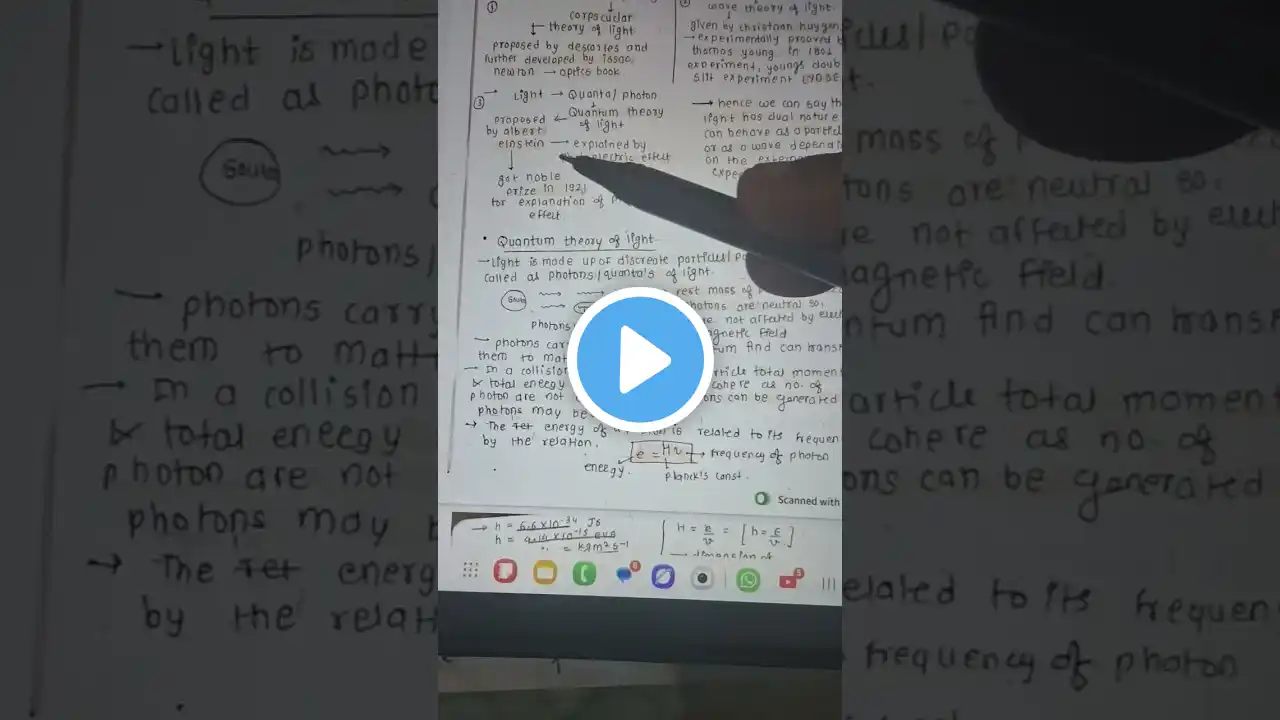 ①
corpscular
theory of light
proposed by descartes and
further developed by issac
newton → optics book
②
wave theory of light.
given by christiaan huygen
→ experimentally prooved b
thomas young in 180
experiment, youngs doub
slit experiment (YDSE
③
→ Light → Quanta/photon
Quantum theory
of light
proposed
by albert
einstein → explained by
electric effect
got noble
prize in 1921
for explanation of
effect
→ hence we can say th
light has dual nature
can behave as a particl
or as a wave depend
on the
expe
• Quantum theory of light
→ Light is made up of discreate particles/
called as photons/quanta's of light.
Source
photons
rest mass of
photons are neutral so,
not affected by elect
magnetic field
→ photons car
tum And can trans
them to mat
→ In a collision
article total momen
& total energy
cohere as no. of
photon are not
ons can be generated
photons may be
→ The energy of a is related to its frequen
by the relation.
e = Hν → frequency of photon
eneegy.
planck's const.
Scanned with
→ h = 6.6 × 10⁻³⁴ Js
h =
= kgm²s⁻¹
H = E/ν = [h = E/ν]
→ dimension of
→ Light is made
called as photo
Source
photons/
→ photons carry
them to matt
→ In a collision
& total eneegy
photon are not
photons may
→ The energ
by the relat
mass of
tons are neutral so,
re not affected by elect
agnetic field.
ntum And can trans
article total moment
cohere as no. of
ons can be generated
elated to its frequen
frequency of photon